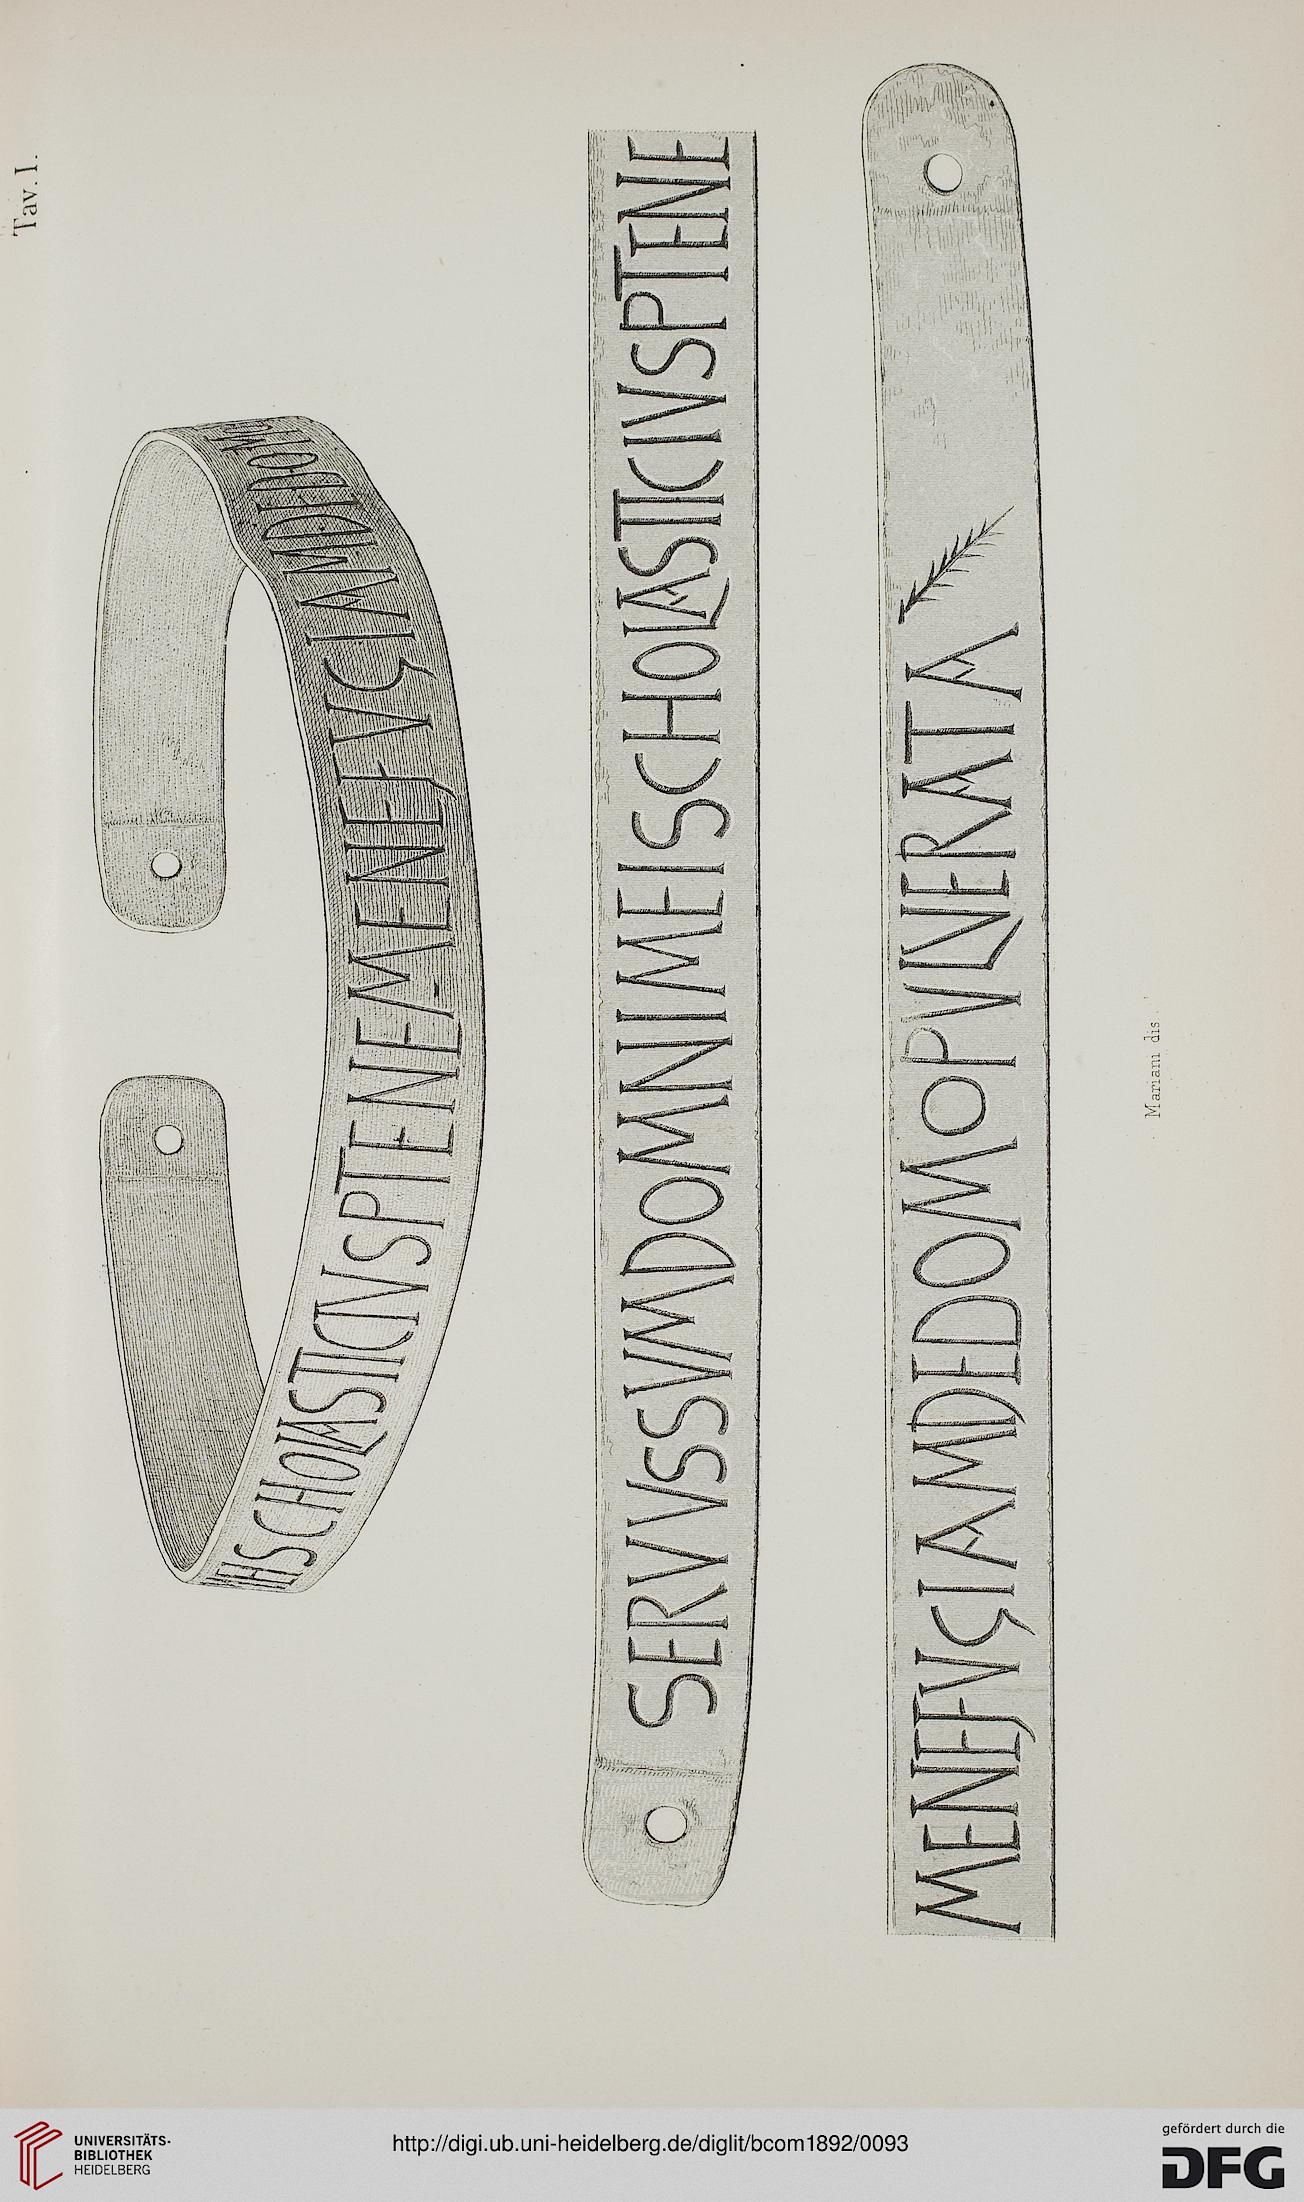 Tav. I.
SCHOLASTICIVSPTENEMENEFVGIAMDEDOMO
SERVVSSVMDOMNIMEISCHOLASTICIVSPTENE
MENEFVGIAMDEDOMOPVLVERATA
Mariani dis
UNIVERSITÄTS-
BIBLIOTHEK
HEIDELBERG
http://digi.ub.uni-heidelberg.de/diglit/bcom1892/0093
gefördert durch die
DFG